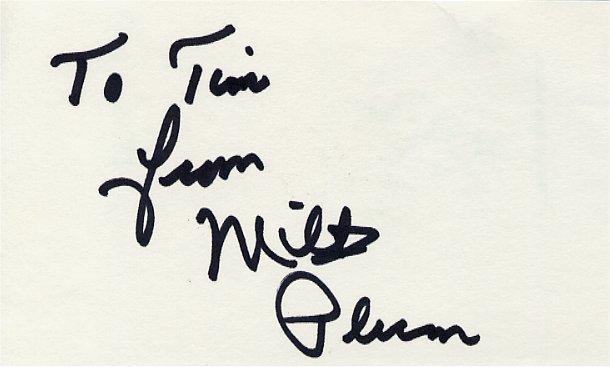 To Tim
from
Milt
Plum